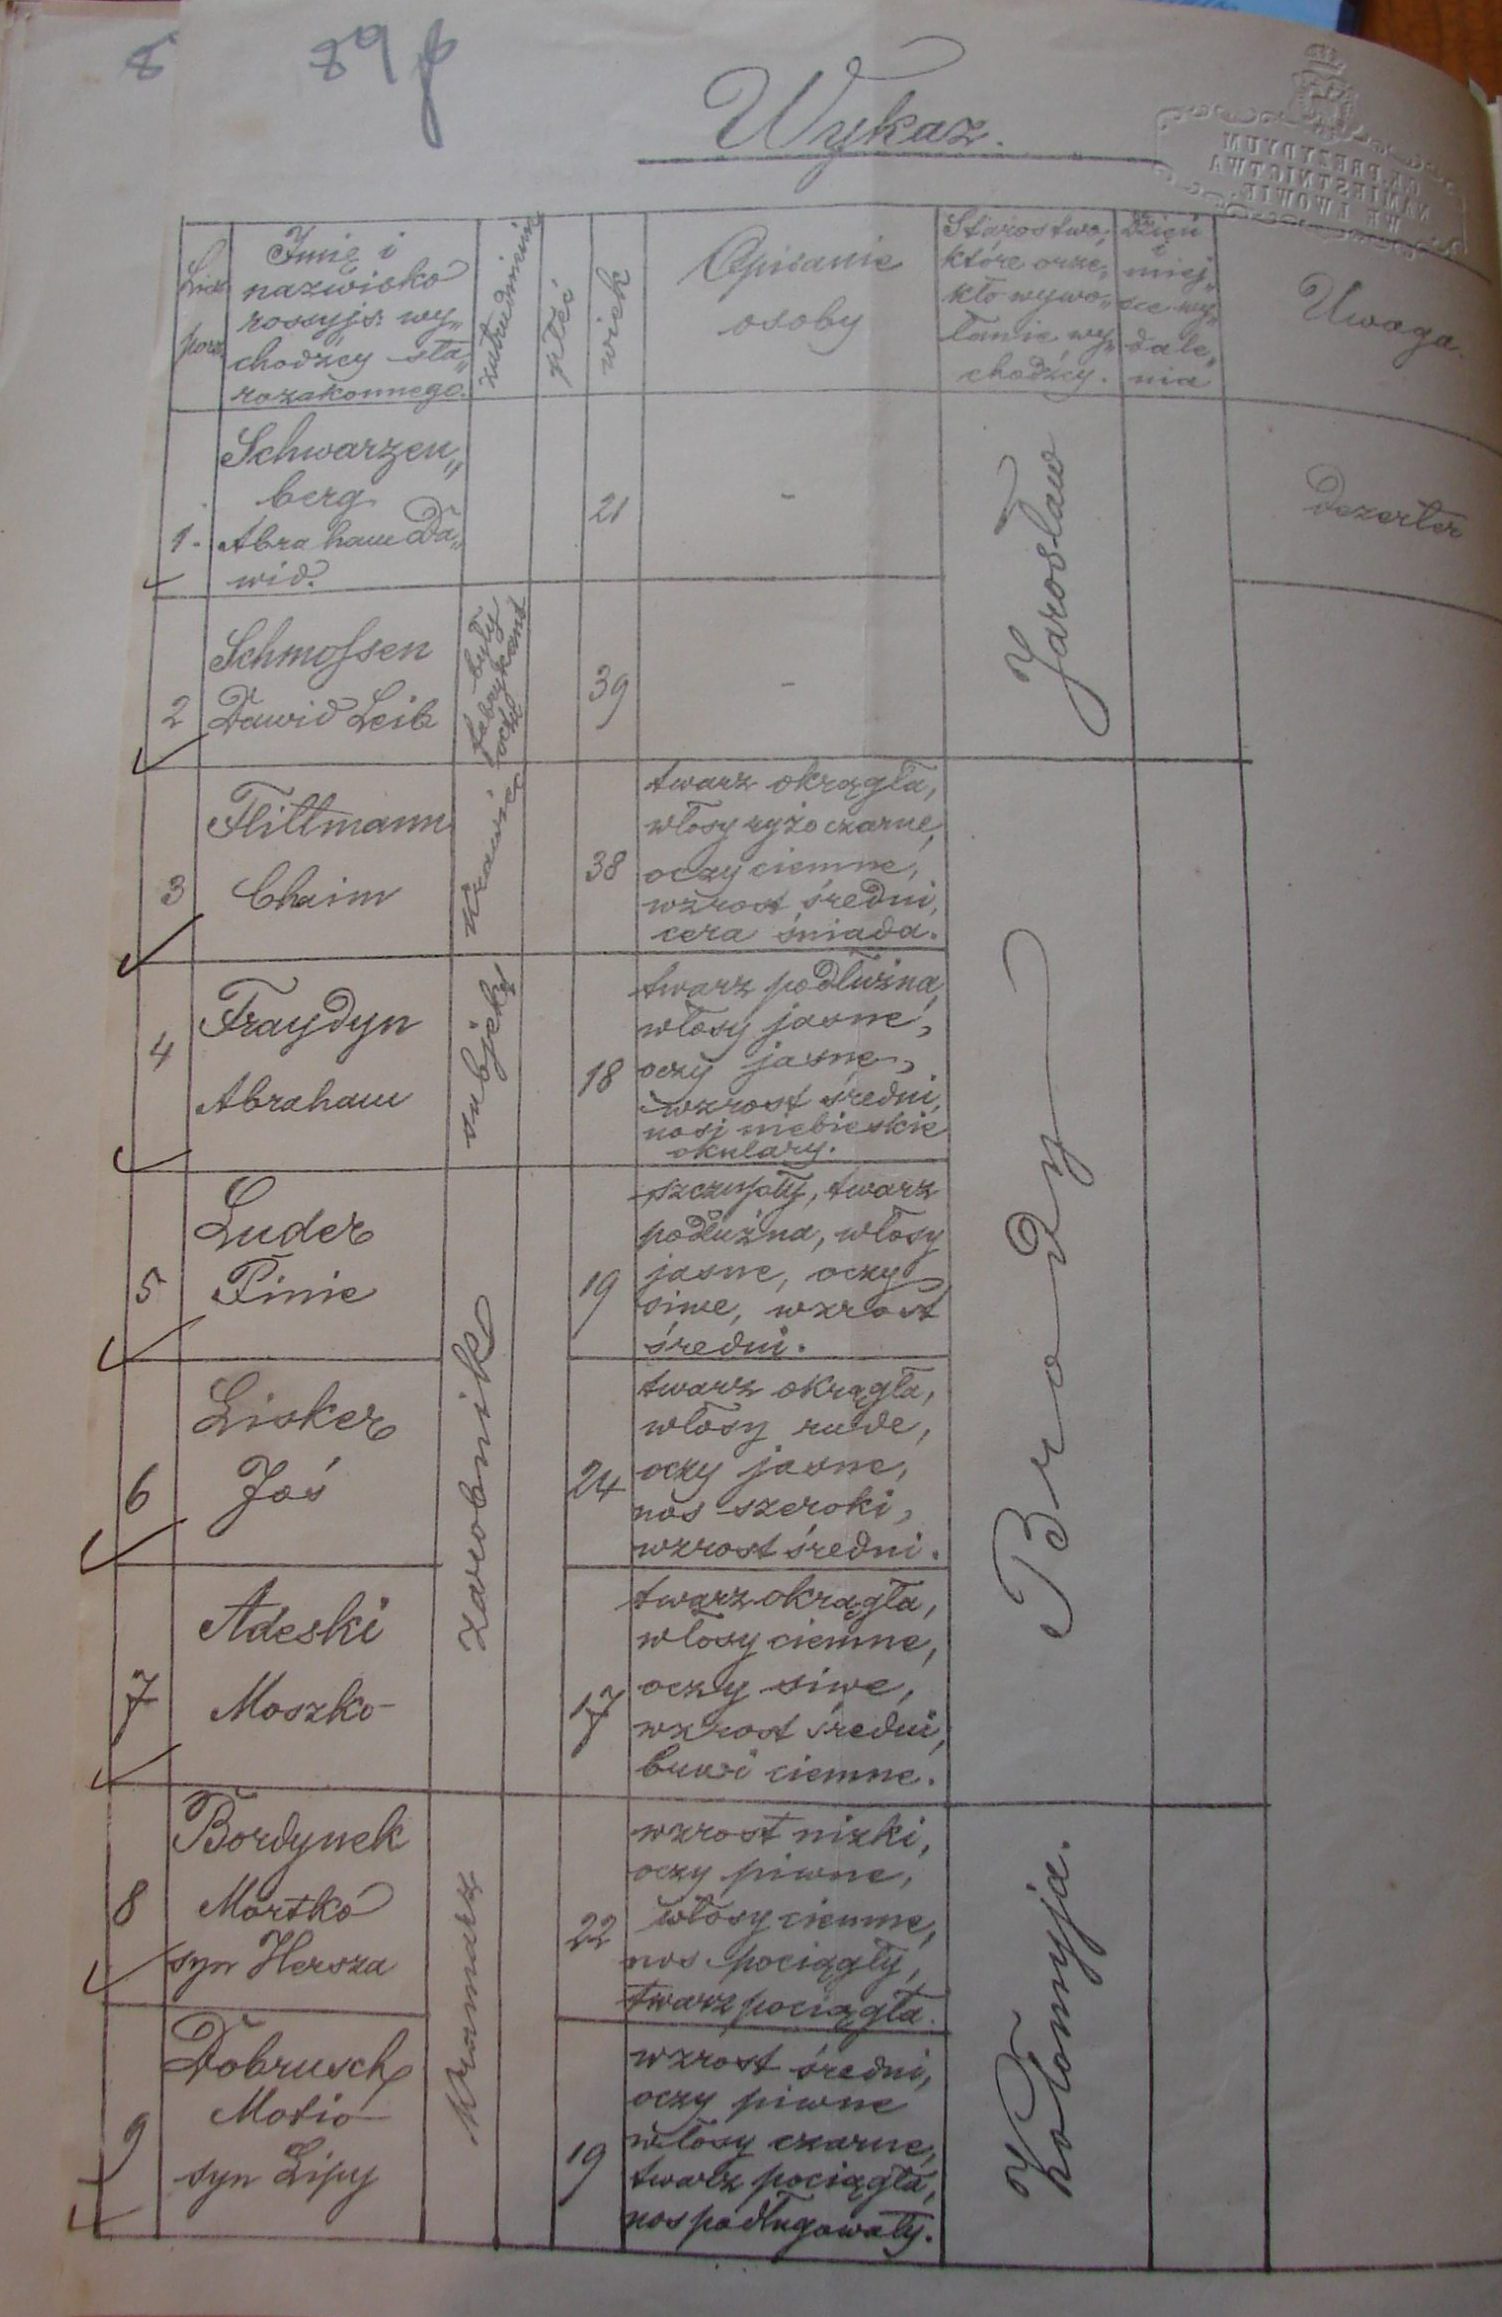 8 89
Wykaz.
C.K. PREZYDYUM
NAMIESTNICTWA
WE LWOWIE
Licz.
porz.
Imię i
nazwisko
rossyjs. wy„
chodźcy sta„
rozakonnego.
zatrudnienie
płeć
wiek
Opisanie
osoby
Starostwo,
które orze„
kło wywo„
łanie wy„
chodźcy.
Dzień
i
miej„
sce wy„
dale„
nia
Uwaga.
1.
Schwarzen„
berg
Abraham Da„
wid.
21
-
Jarosław
dezerter
2
Schmofsen
Dawid Leib
były
fabrykant
octu
39
-
3
Flittmann
Chaim
Krawiec
38
twarz okrągła,
włosy ryżo czarne,
oczy ciemne,
wzrost średni,
cera śniada.
Brody
4
Fraydyn
Abraham
subjekt
18
twarz podłużna,
włosy jasne,
oczy jasne,
wzrost średni,
nosi niebieskie
okulary.
5
Luder
Pinie
zarobnik
19
szczupły, twarz
podłużna, włosy
jasne, oczy
siwe, wzrost
średni.
6
Lisker
Joś
24
twarz okrągła,
włosy rude,
oczy jasne,
nos szeroki,
wzrost średni.
7
Adeski
Moszko
17
twarz okrągła,
włosy ciemne,
oczy siwe,
wzrost średni,
brwi ciemne.
8
Bordynek
Mortko
syn Hersza
Kramarz
22
wzrost nizki,
oczy piwne,
włosy ciemne,
nos pociągły,
twarz pociągła.
Kołomyja.
9
Dobrusch
Motio
syn Lipy
19
wzrost średni,
oczy piwne
włosy czarne,
twarz pociągła,
nos podługowaty.